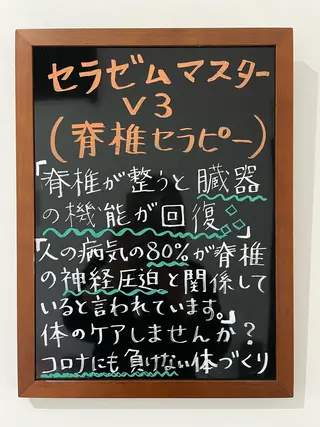 セラゼムマスター
V3
(脊椎セラピー)
「脊椎が整うと臓器
の機能が回復」
「人の病気の80%が脊椎
の神経圧迫と関係して
いると言われています。」
体のケアしませんか?
コロナにも負けない体づくり